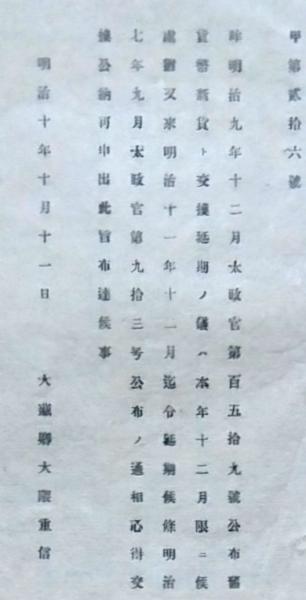 甲第貳拾六號
昨明治九年十二月太政官第百五拾九號公布舊
貨幣新貨ト交換延期ノ儀ハ本年十二月限ニ候
處猶又來明治十一年十二月迄令延期候條明治
七年九月太政官第九拾三号公布ノ通相心得交
換公納可申出此旨布達候事
明治十年十月十一日　大藏卿大隈重信